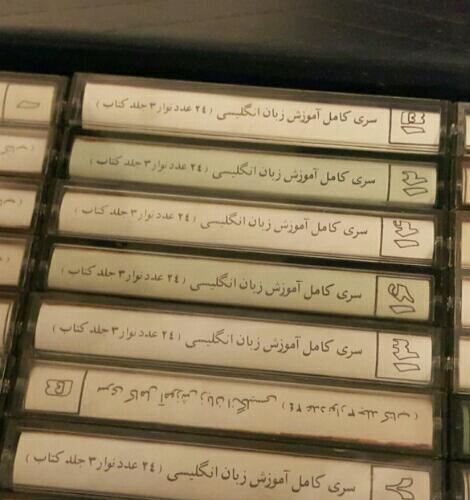 سری کامل آموزش زبان انگلیسی ( ۲۴ عدد نوار ۳ جلد کتاب )
سری کامل آموزش زبان انگلیسی ( ۲۴ عدد نوار ۳ جلد کتاب )
سری کامل آموزش زبان انگلیسی ( ۲۴ عدد نوار ۳ جلد کتاب )
سری کامل آموزش زبان انگلیسی ( ۲۴ عدد نوار ۳ جلد کتاب )
سری کامل آموزش زبان انگلیسی ( ۲۴ عدد نوار ۳ جلد کتاب )
سری کامل آموزش زبان انگلیسی ( ۲۴ عدد نوار ۳ جلد کتاب )
سری کامل آموزش زبان انگلیسی ( ۲۴ عدد نوار ۳ جلد کتاب )